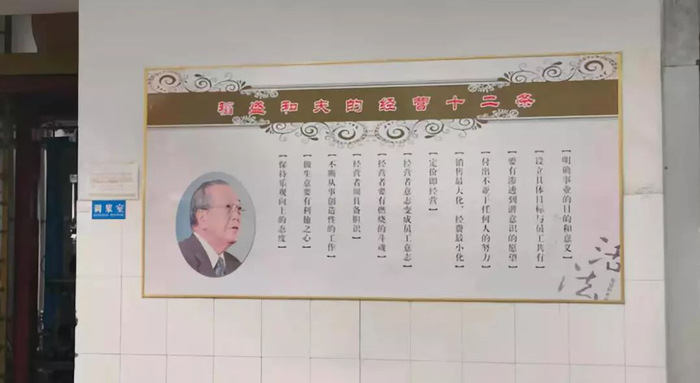 稻盛和夫的经营十二条
【明确事业的目的和意义】
【设立具体目标与员工共有】
【要有渗透到潜意识的愿望】
【付出不亚于任何人的努力】
【销售最大化、经费最小化】
【定价即经营】
【经营者意志变成员工意志】
【经营者要有燃烧的斗魂】
【经营者需具备胆识】
【不断从事创造性的工作】
【做生意要有利他之心】
【保持乐观向上的态度】
调浆室